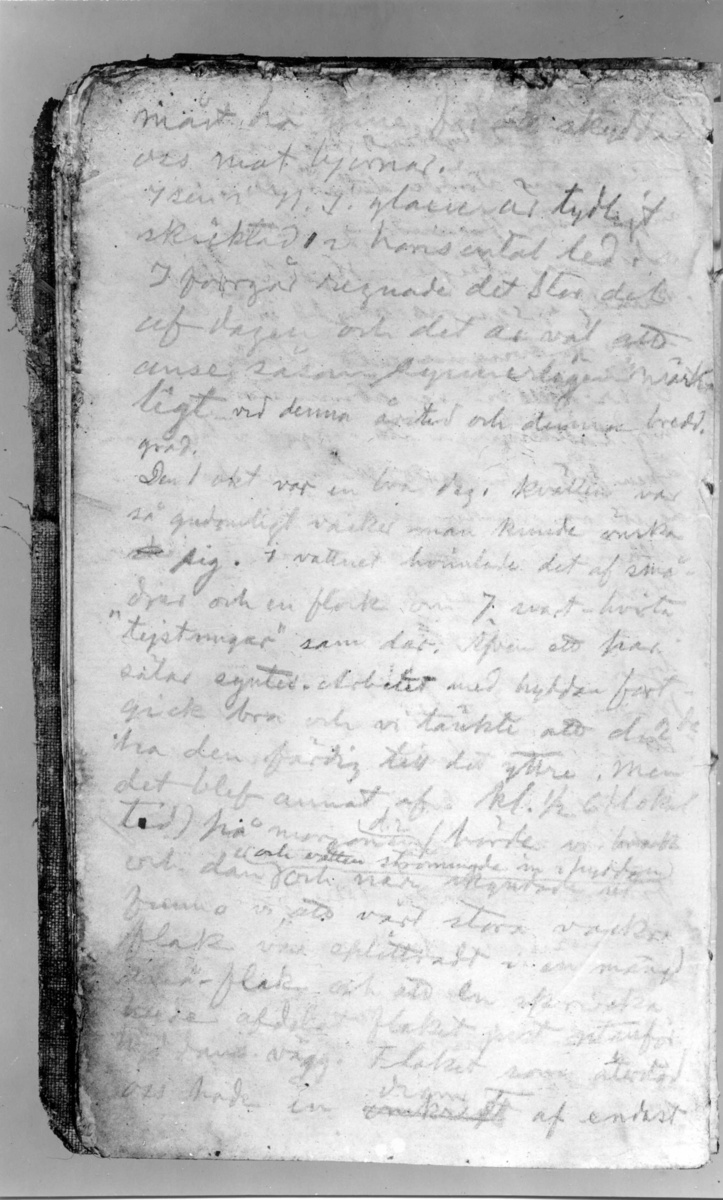 måst ha skydda
oss mot björnar.
Isen i N. I. glacier är tydligt
skiktad i horisontal led.
I förrgår regnade det stor del
af dagen och det är väl att
anse såsom synnerligen märk
ligt vid denna årstid och denna bredd.
grad.
Den 1 okt var en bra dag. Kvällen var
så gudomligt vacker man kunde önska
sig. I vattnet hvimlade det af små-
djur och en flock om 7 svart-hvita
"tejstungar" sam där. Äfven ett par
sälar syntes. Arbetet med hyddan fort-
gick bra och vi tänkte att
ha den färdig till det yttre. Men
det blef annat af. Kl. ½ 6 (lokal
tid) på morgonen d. 2 hörde vi brak
och dån och vatten strömmade in i hyddan
och när vi skyndade ut
funno vi att vårt stora vackra
flak var splittradt i en mängd
små-flak och att en skråcka
hade afdelat flaket just utanför
hyddans vägg. Flaket som återstod
oss hade en diam af endast